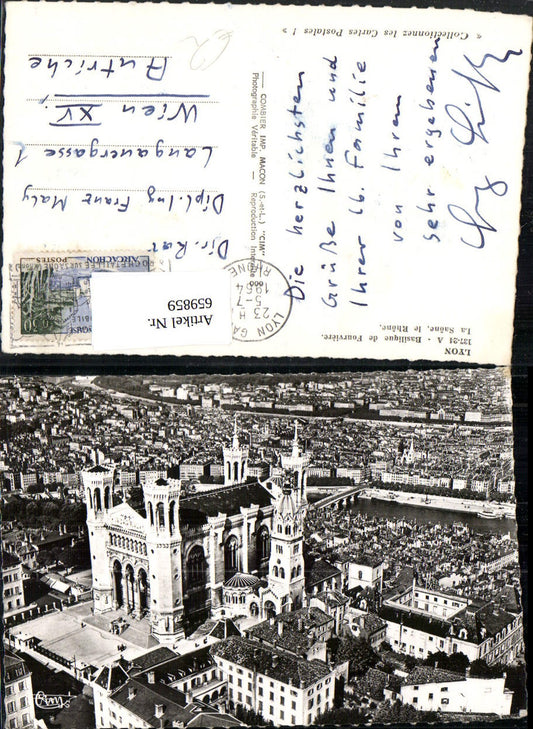 « Collectionnez les Cartes Postales ! »
Die herzlichsten
Grüße Ihnen und
Ihrer lb. Familie
von Ihrem
sehr ergebenen
COMBIER IMP. MACON (S.-et-L.) "CIM"
Photographie Véritable — Reproduction Interdite
LYON GA
23 H
5-7
1964
RHONE
ARCACHON
POSTES
Dir. Rat
Dipl. Ing Franz Maly
Langauergasse 1
Wien XV.
Autriche
Artikel Nr.
659859
LYON
127-21 A - Basilique de Fourvière.
La Saône, le Rhône.
Cim